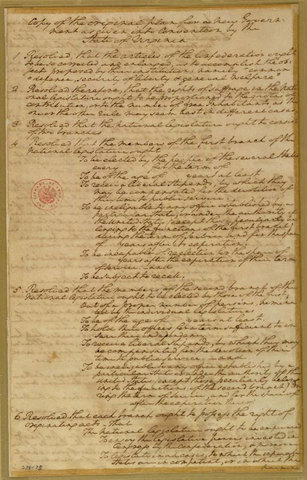 Copy of the original plan for a new Govern-
ment as given into Convention by the
State of Virginia
1. Resolved, that the articles of the Confederation ought
to be so corrected and enlarged, as to accomplish the ob-
jects proposed by their institution; namely common
"defence, security of liberty & general welfare."
2. Resolved therefore, that the rights of suffrage in the Nat-
ional Legislature ought to be proportioned to the quotas of
contribution, or to the number of free Inhabitants as the
one or the other rule may seem best in different cases.
3. Resolved that the national legislature ought to consist
of two branches
4. Resolved that the members of the first branch of the
national Legislature ought
To be elected by the people of the several States
every for the term of
To be of the age of years at least
To receive liberal stipends, by which they
may be compensated for the devotion of
their time to public service
To be ineligible to any office established by a
particular state, or under the authority of
the United States, except those
belonging to the functions of the first branch
during the term of service, and for the space
of years after its expiration;
To be incapable of reelection for the space of
years after the expiration of their term
of service, and
To be subject to recall.
5. Resolved that the members of the second branch of the
National Legislature ought to be elected by those of the first
out of a proper number of persons nomina-
ted by the individual Legislatures
To be of the age of years at least
To hold their offices for a term sufficient to en-
sure their independency
To receive liberal stipends, by which they may
be compensated for the devotion of their
time to public service; and
To be ineligible to any office established by a
particular State, or under the authority of the
United States, except those peculiarly belong-
ing to the functions of the second branch, du-
ring the term of service, and for the space of
after the expiration thereof.
6. Resolved that each branch ought to possess the right of
originating acts, that
the national legislature ought to be empowered
To enjoy the legislative powers vested in
Congress by the Confederation; and moreover
To legislate in all cases, to which the separate
States are incompetent, or in which the